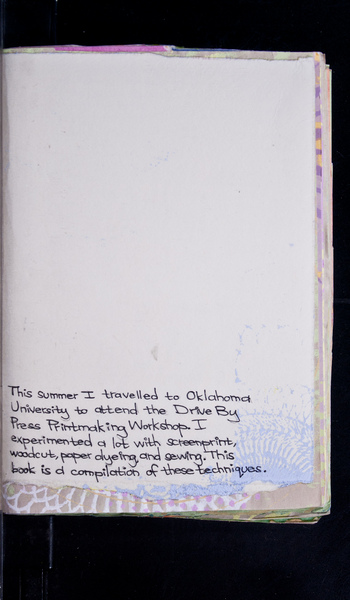 This summer I travelled to Oklahoma
University to attend the Drive By
Press Printmaking Workshop. I
experimented a lot with screenprint,
woodcut, paper dyeing, and sewing. This
book is a compilation of these techniques.